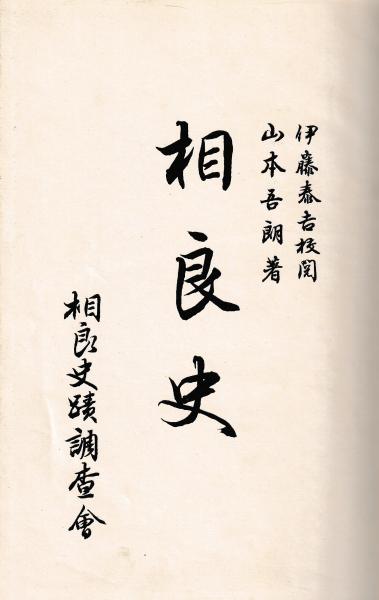 伊藤泰吉校閲
山本吾朗著
相良史
相良史蹟調查會